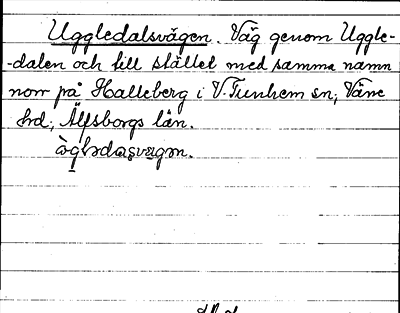 Uggledalsvägen. Väg genom Uggle-
-dalen och till stället med samma namn
norr på Halleberg i V. Tunhem sn, Väne
hd, Älfsborgs län.